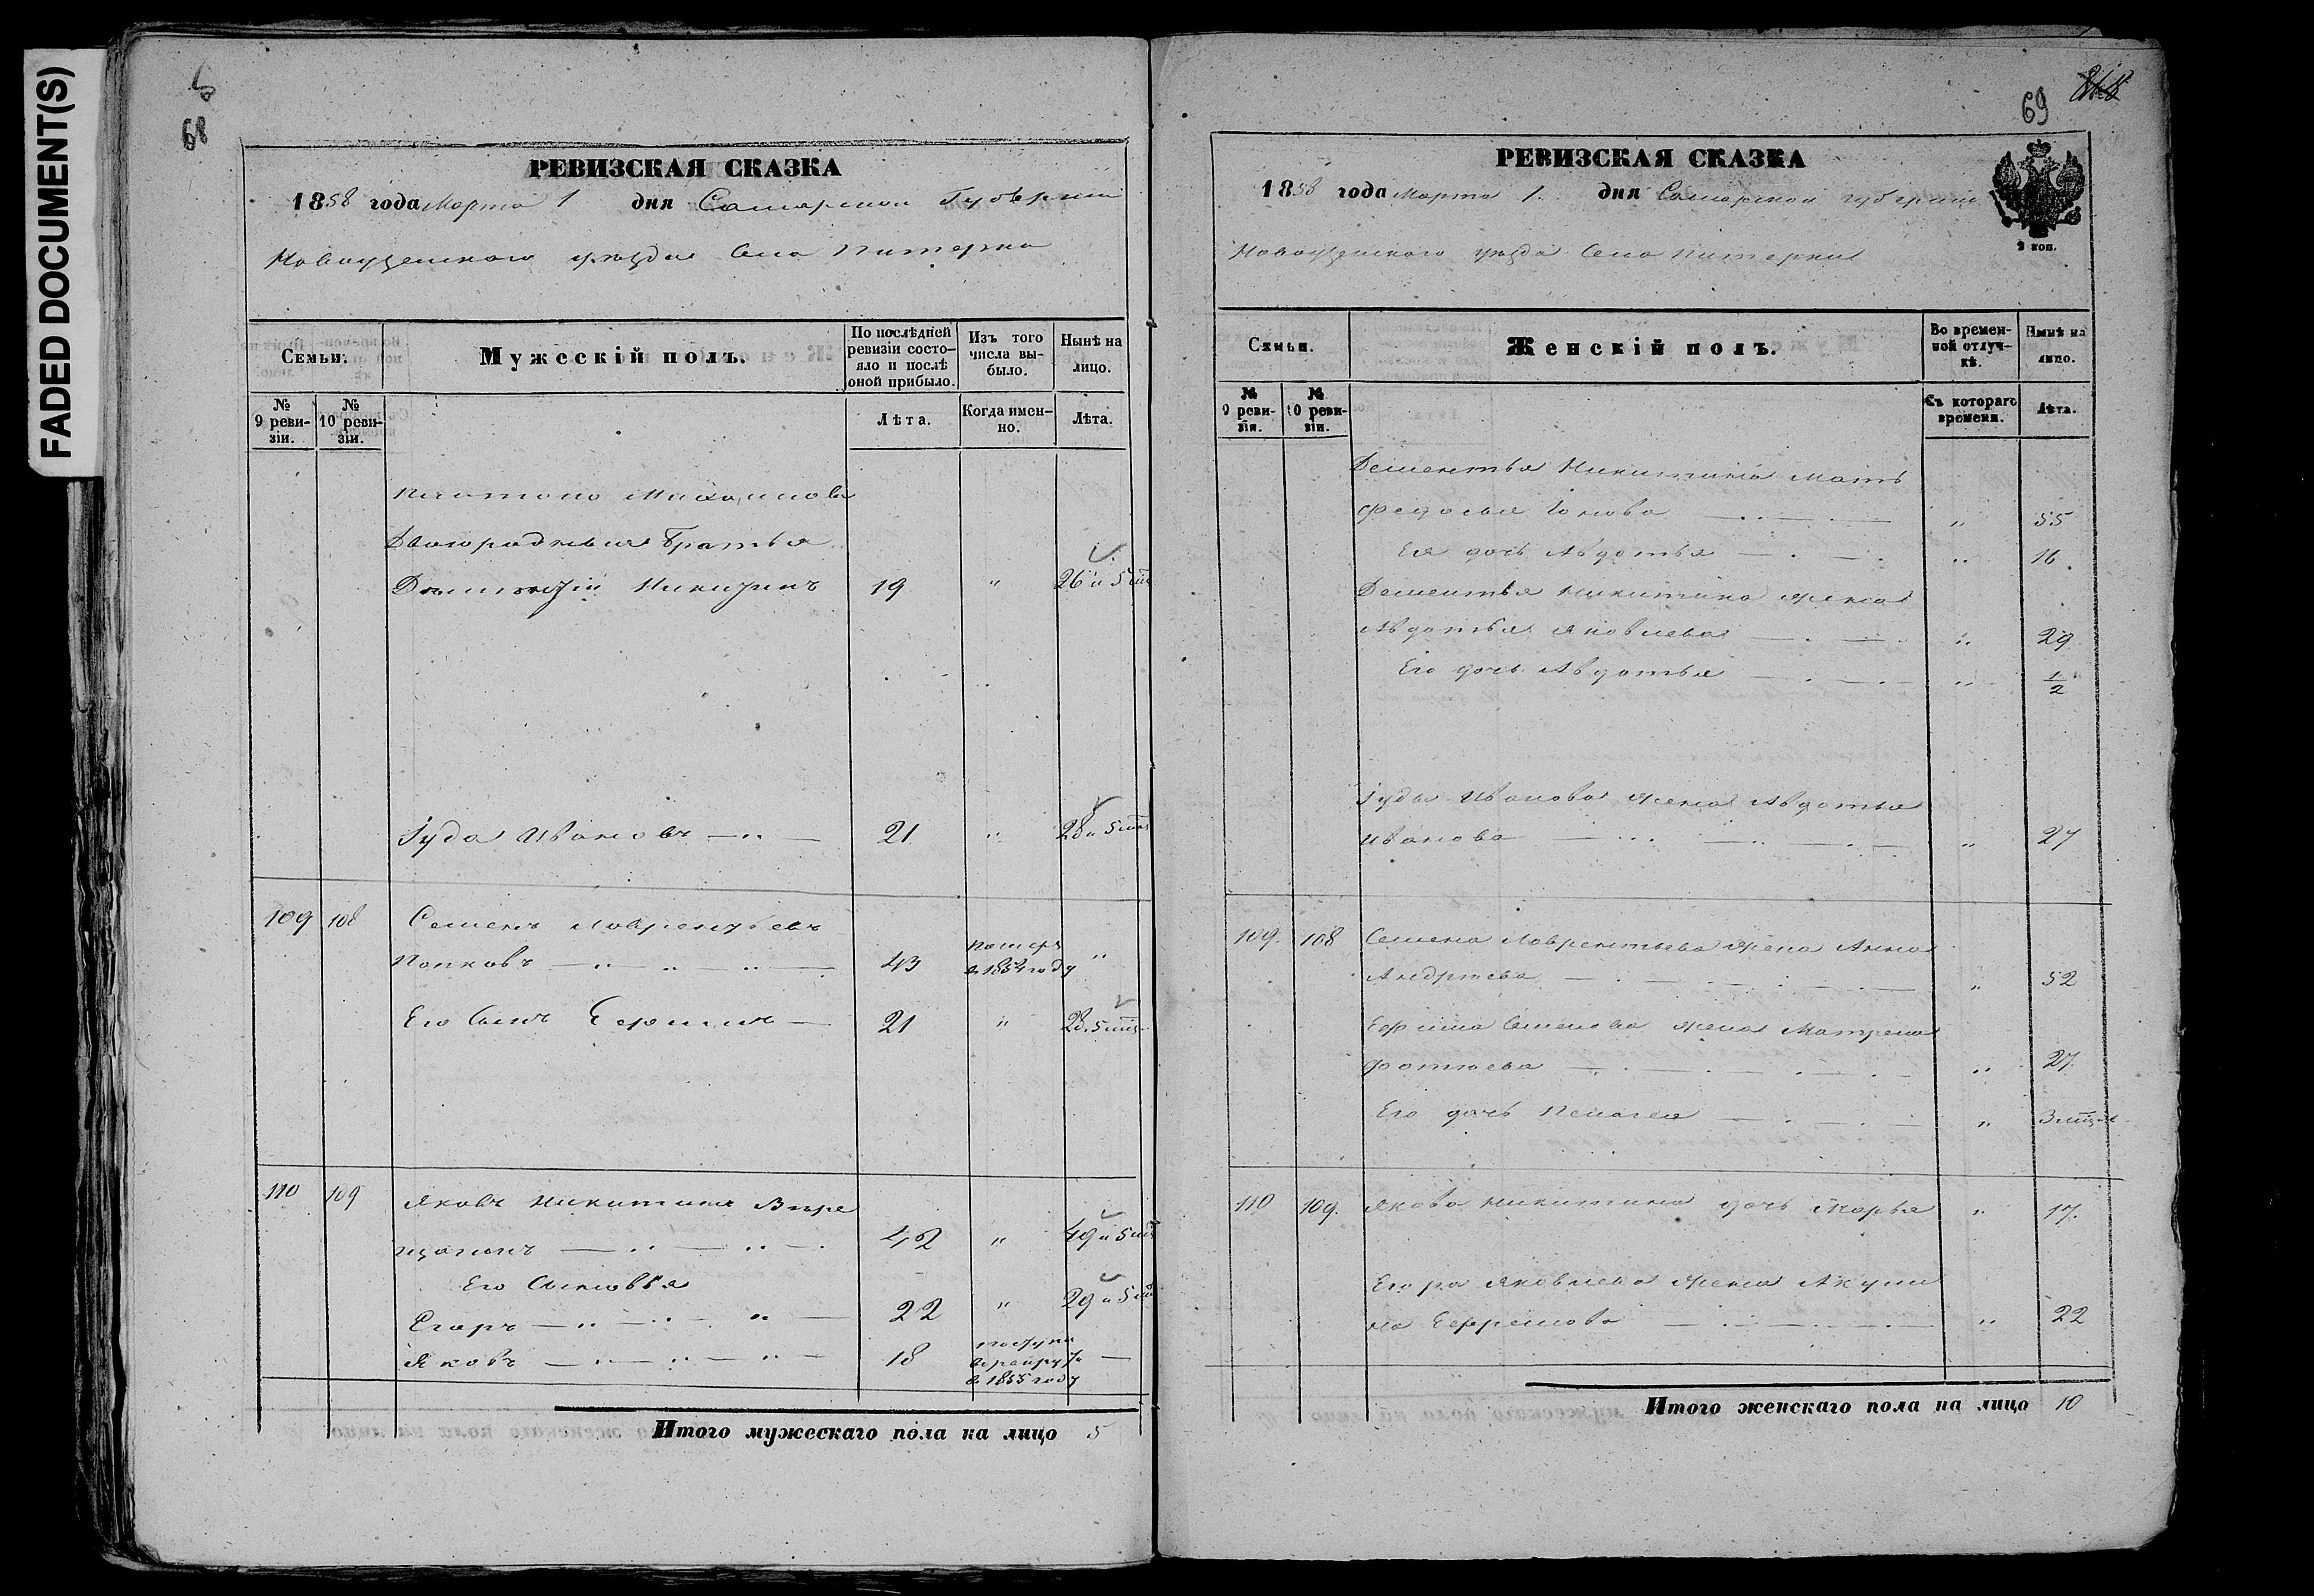 FADED DOCUMENT(S)
68
РЕВИЗСКАЯ СКАЗКА
1858 года Марта 1 дня Самарской Губерніи
Новоузенскаго уѣзда Села Питерки
Семьи.
Мужескій полъ.
По послѣдней ревизіи состо-
яло и послѣ оной прибыло.
Изъ того числа вы-
было.
Нынѣ на лицо.
№ 9 реви-
зіи.
№ 10 реви-
зіи.
Лѣта.
Когда имен-
но.
Лѣта.
Платона Михайлова
Двоюродныя Братья
Дементій Никитинъ 19 " 26 и 5 мц
Іуда Ивановъ 21 " 28 и 5 мц
109 108 Семенъ Лаврентьевъ
Попковъ 43 померъ в 1854 году "
Его Сынъ Ефимъ 21 " 28 и 5 мц
110 109 Яковъ Никитинъ Вере
щагинъ 42 " 49 и 5 мц
Его Сыновья
Егоръ 22 " 29 и 5 мц
Яковъ 18 поступ в рекруты в 1855 году —
Итого мужескаго пола на лицо 5
69
РЕВИЗСКАЯ СКАЗКА
1858 года Марта 1. дня Самарской губерніи
Новоузенскаго уѣзда Села Питерки
Семьи.
Женскій полъ.
Во времен-
ной отлуч-
кѣ.
Нынѣ на лицо.
№ 9 реви-
зіи.
№ 10 реви-
зіи.
Съ котораго времени.
Лѣта.
Дементья Никитина Мать
Федосья Іонова " 55
Ея дочь Авдотья " 16
Дементья Никитина жена
Авдотья Яковлева " 29
Его дочь Авдотья " 1/2
Іуды Иванова жена Авдотья
Иванова " 27
109. 108 Семена Лаврентьева жена Анна
Андреева " 52
Ефима Семенова жена Матрена
Фотиева " 27.
Его дочь Пелагея " 3 мца
110 109. Якова Никитина дочь Марья " 17.
Егора Яковлева жена Акули
на Ефремова " 22
Итого женскаго пола на лицо 10
2 коп.